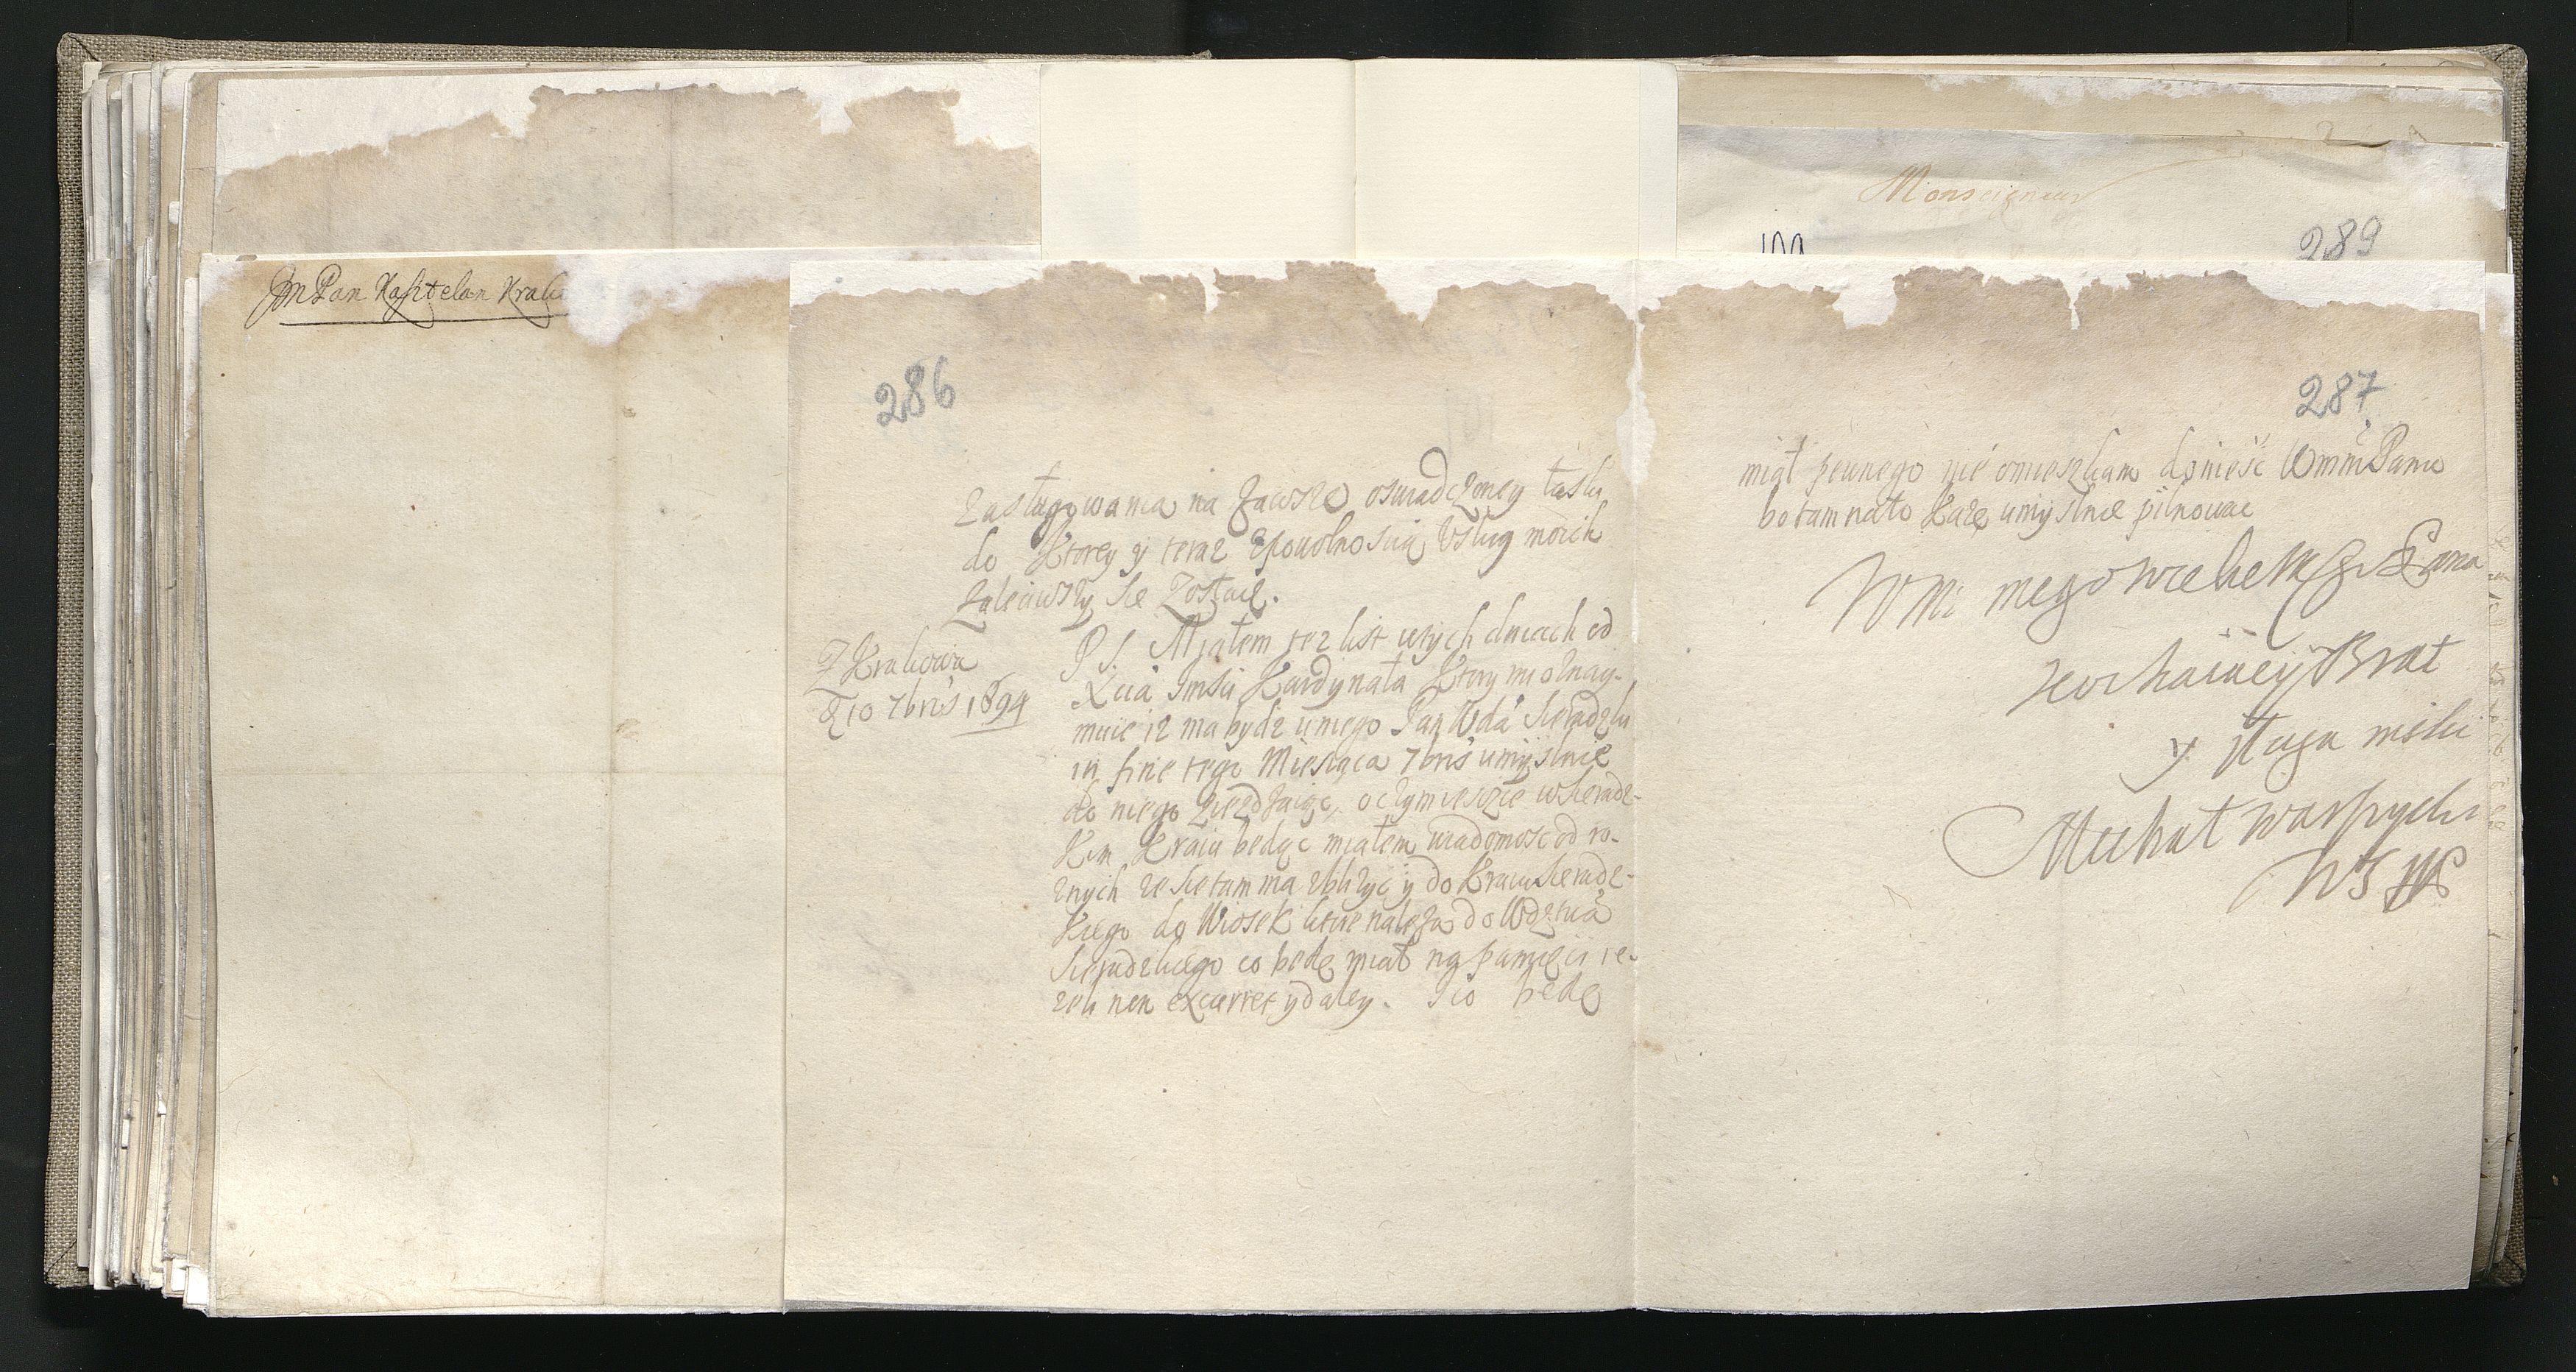 Jm Pan Kasztelan Krak
286
zasługowania na zawsze oswiadczoney łaski
do Ktorey y teraz zpowolnoscią Usług moich
zaleciwszy sie zostaię.
Z Krakowa
d 10 7bris 1694
P S. Miałem tez list wtych dniach od
Xcia Imsci Kardynała Ktory mi oznay-
muie iz ma bydz uniego Pan Wda Sieradzki
in fine tego Miesiąca 7bris umyslnie
do niego ziezdzaiąc, oczym ieszcze wSieradz-
Kim Kraiu bedąc miałem wiadomosc od ro-
znych ze sie tam ma zblizyc y do Kraiu Sieradz-
Kiego do Wiosek ktore naleza do Wdztwa
Sieradzkiego co bede miał na pamięci ie-
zeli non excurret ydaley. I co bede
Monseigneur
289
287
miał pewnego nie omieszkam donieść Wmm Panu
bo tam nato Kaze umyslnie pilnowac
WMc mego wielce Pana
kochaiący Brat
y sługa niski
Michał Warszycki